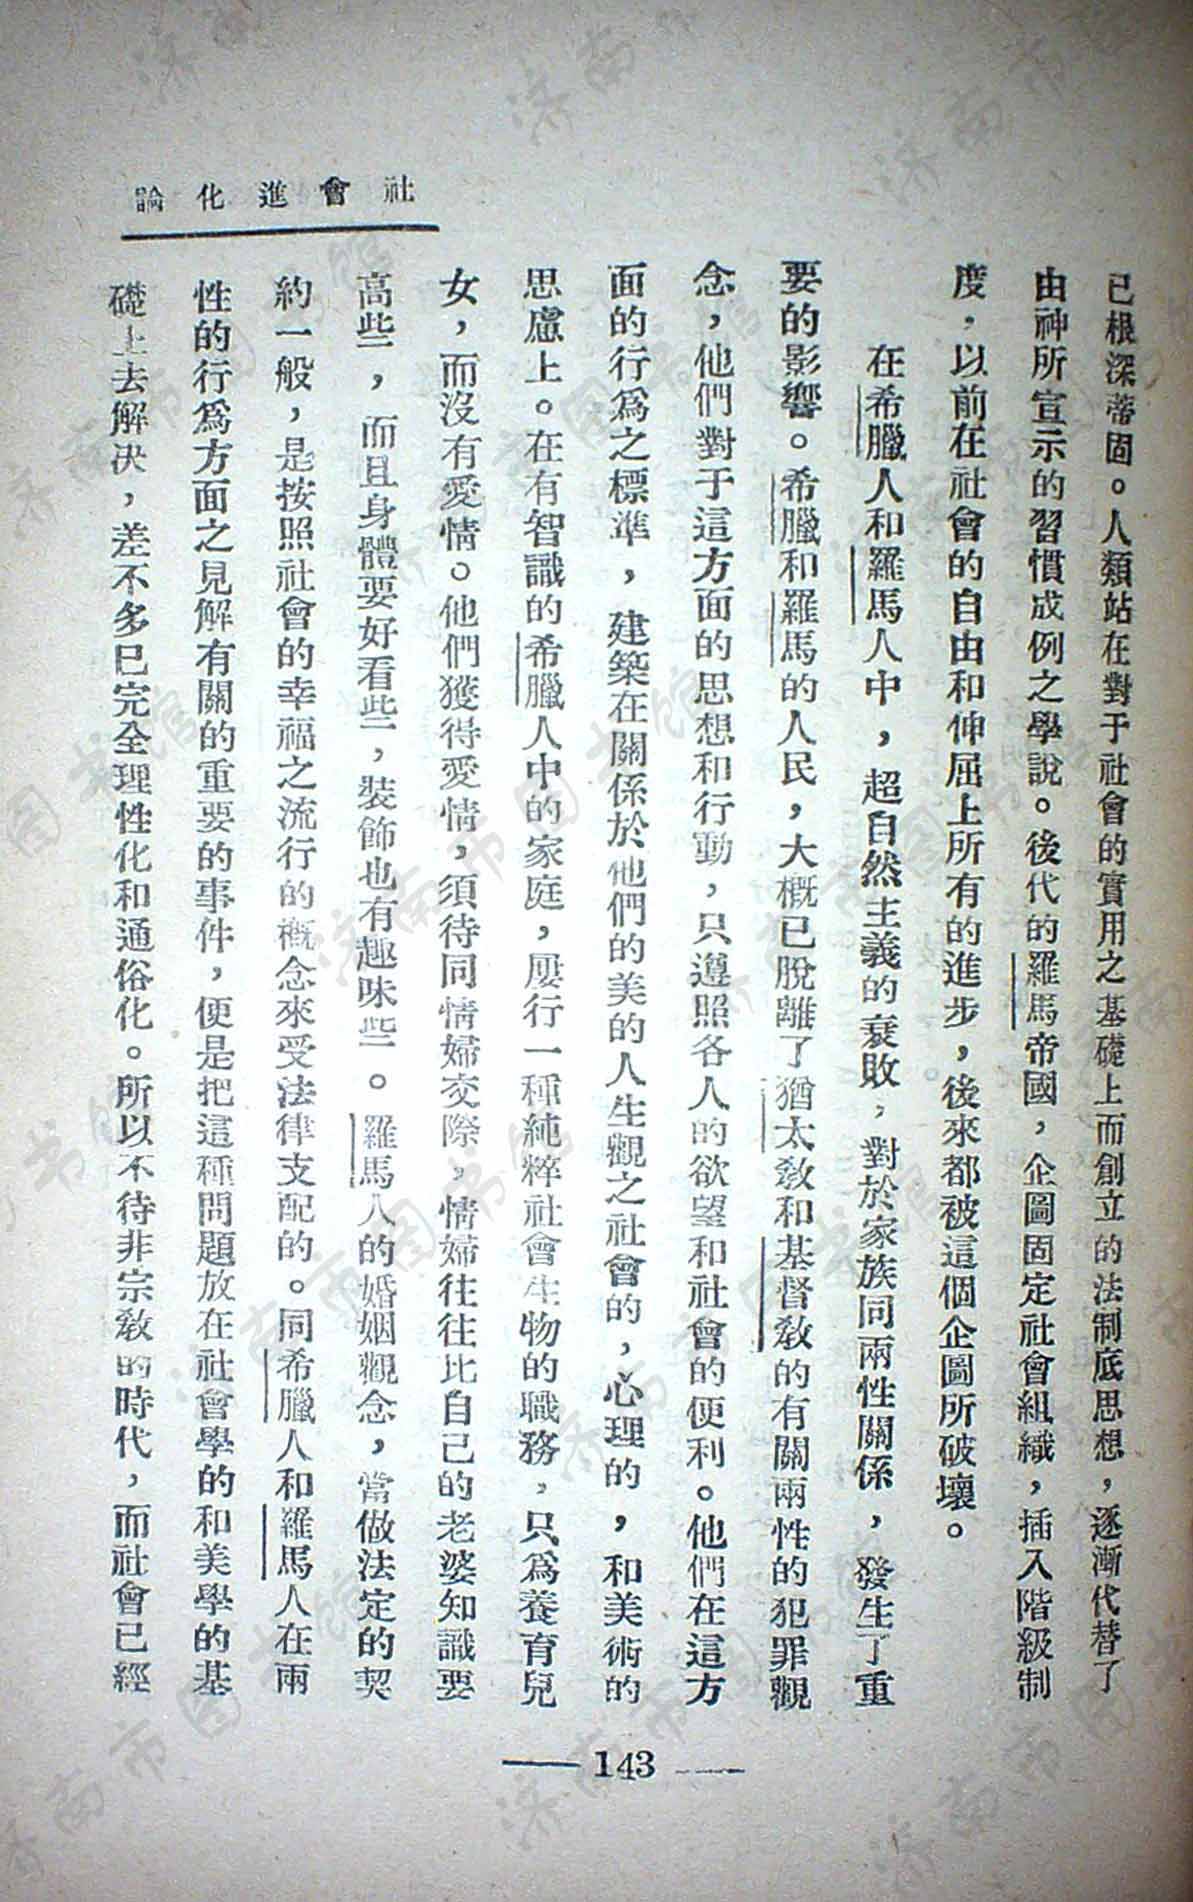 社會進化論
已根深蒂固。人類站在對于社會的實用之基礎上而創立的法制底思想，逐漸代替了
由神所宣示的習慣成例之學說。後代的羅馬帝國，企圖固定社會組織，插入階級制
度，以前在社會的自由和伸屈上所有的進步，後來都被這個企圖所破壞。
在希臘人和羅馬人中，超自然主義的衰敗，對於家族同兩性關係，發生了重
要的影響。希臘和羅馬的人民，大概已脫離了猶太教和基督教的有關兩性的犯罪觀
念，他們對于這方面的思想和行動，只遵照各人的欲望和社會的便利。他們在這方
面的行爲之標準，建築在關係於他們的美的人生觀之社會的，心理的，和美術的
思慮上。在有智識的希臘人中的家庭，屢行一種純粹社會生物的職務，只爲養育兒
女，而沒有愛情。他們獲得愛情，須待同情婦交際，情婦往往比自己的老婆知識要
高些，而且身體要好看些，裝飾也有趣味些。羅馬人的婚姻觀念，當做法定的契
約一般，是按照社會的幸福之流行的概念來受法律支配的。同希臘人和羅馬人在兩
性的行爲方面之見解有關的重要的事件，便是把這種問題放在社會學的和美學的基
礎上去解決，差不多已完全理性化和通俗化。所以不待非宗教的時代，而社會已經
— 143 —
济南市图书馆